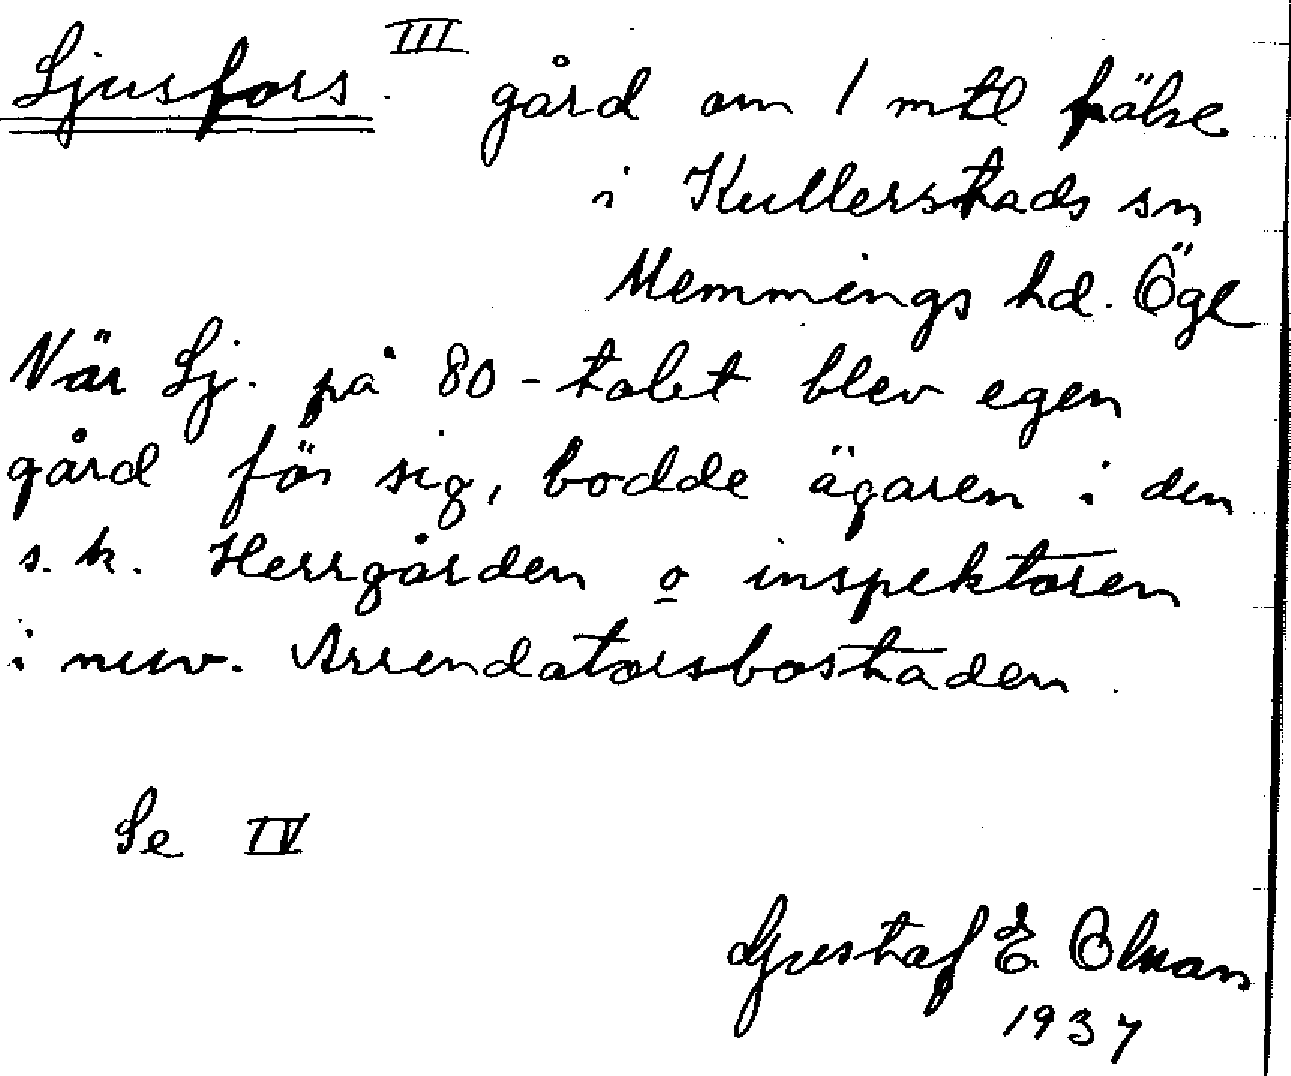 Ljusfors III gård om 1 mtl frälse
i Kullerstads sn
Memmings hd. Ögl
När Lj. på 80-talet blev egen
gård för sig, bodde ägaren i den
s.k. Herrgården o inspektoren
i nuv. Arrendatorsbostaden.
Se IV
Gustaf E Olman
1937